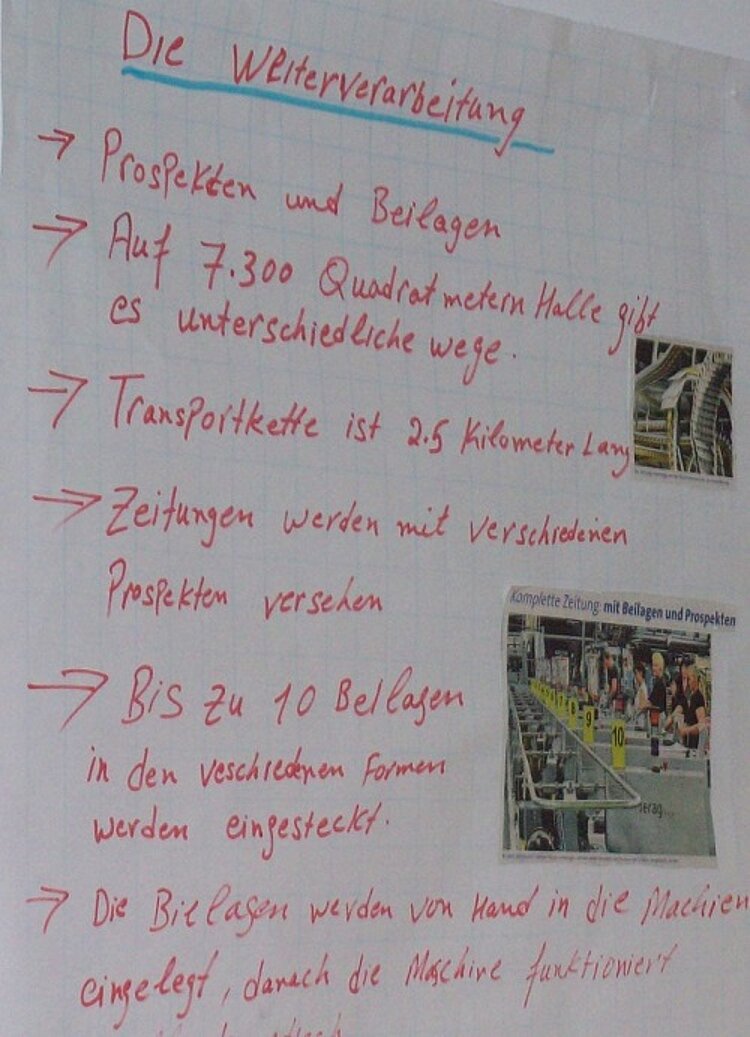 Die Weiterverarbeitung
→ Prospekten und Beilagen
→ Auf 7.300 Quadratmetern Halle gibt
es unterschiedliche wege.
→ Transportkette ist 2.5 Kilometer Lang
→ Zeitungen werden mit verschiedenen
Prospekten versehen
Komplette Zeitung: mit Beilagen und Prospekten
→ Bis zu 10 Beilagen
in den veschiedenen Formen
werden eingesteckt.
8
9
10
→ Die Bielagen werden von Hand in die Machien
eingelegt, danach die Maschine funktioniert